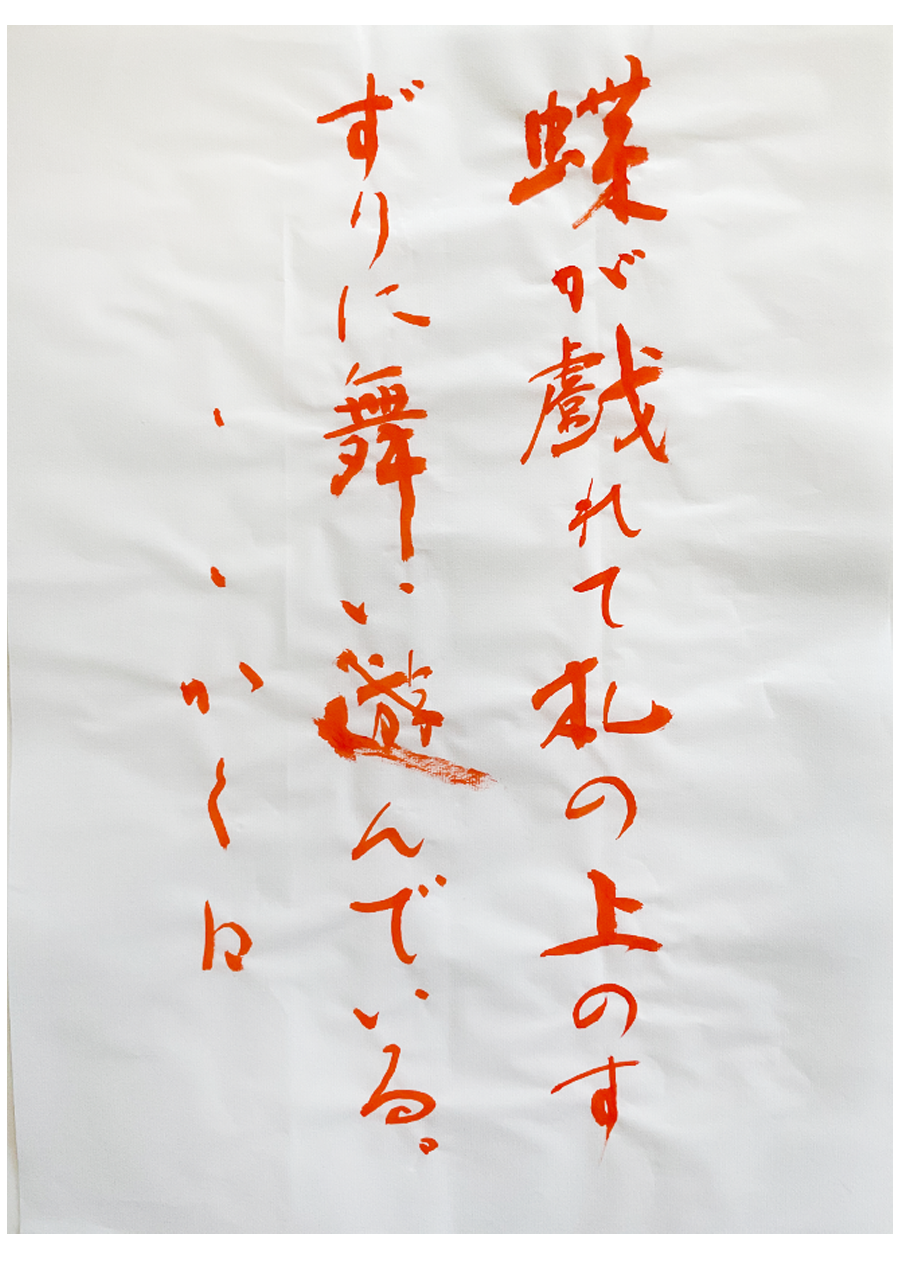 蝶が戯れて札の上のす
ずりに舞い遊んでいる。
、、かくね